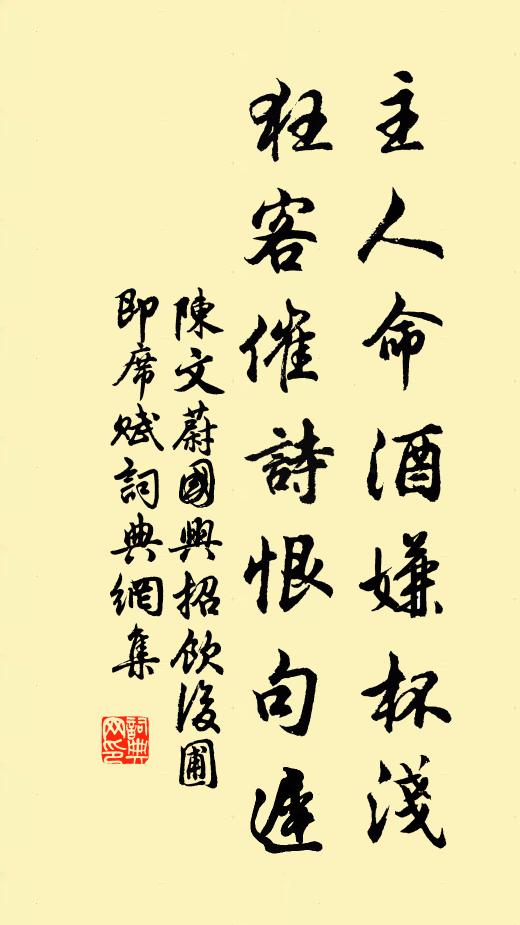 主人命酒嫌杯淺
狂客催詩恨句遲
陳文蔚國興招飲後圃
即席賦詞典網集
詞典
网印